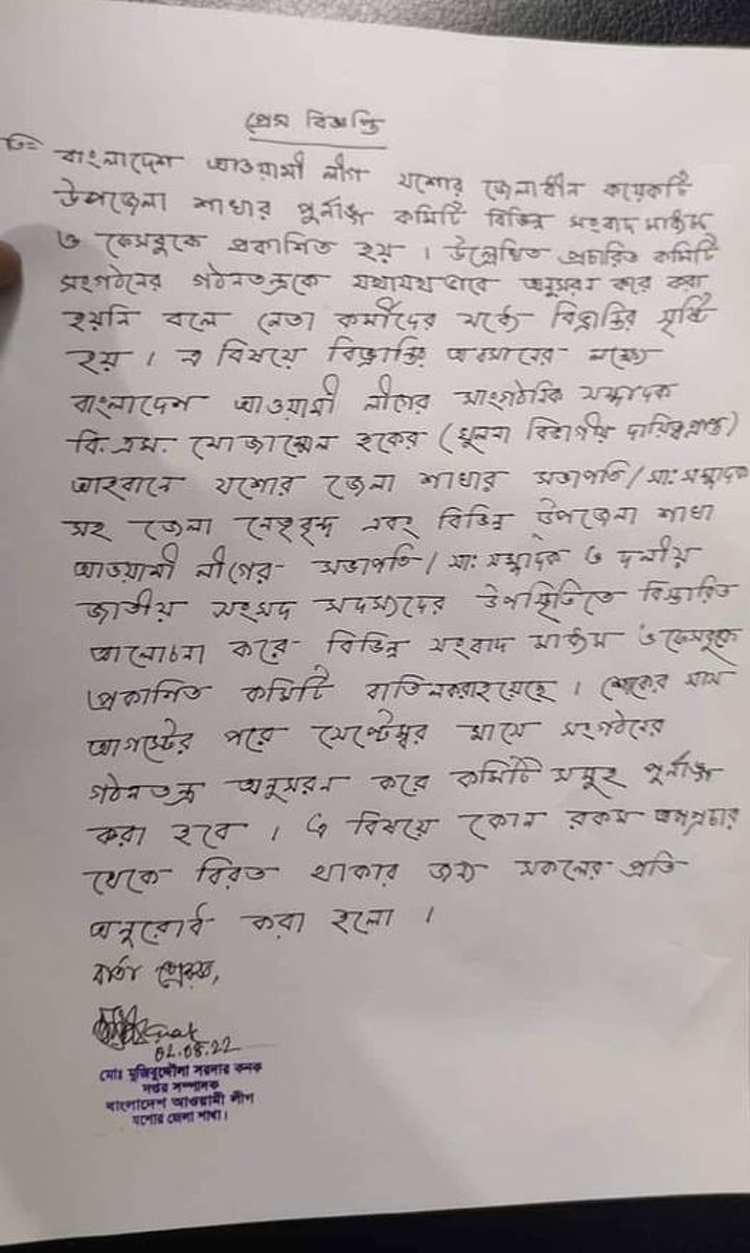 প্রেস বিজ্ঞপ্তি
বাংলাদেশ আওয়ামী লীগ যশোর জেলাধীন কয়েকটি
উপজেলা শাখার পুর্নাঙ্গ কমিটি বিভিন্ন সংবাদ মাধ্যম
ও ফেসবুকে প্রকাশিত হয় । উল্লেখিত প্রচারিত কমিটি
সংগঠনের গঠনতন্ত্রকে যথাযথ ভাবে অনুসরণ করে করা
হয়নি বলে নেতা কর্মীদের মধ্যে বিভ্রান্তির সৃষ্টি
হয় । এ বিষয়ে বিভ্রান্তি অবসানের লক্ষ্যে
বাংলাদেশ আওয়ামী লীগের সাংগঠনিক সম্পাদক
বি.এম. মোজাম্মেল হকের (খুলনা বিভাগীয় দায়িত্বপ্রাপ্ত)
আহবানে যশোর জেলা শাখার সভাপতি/সা: সম্পাদক
সহ জেলা নেতৃবৃন্দ এবং বিভিন্ন উপজেলা শাখা
আওয়ামী লীগের সভাপতি/সা: সম্পাদক ও দলীয়
জাতীয় সংসদ সদস্যদের উপস্থিতিতে বিস্তারিত
আলোচনা করে বিভিন্ন সংবাদ মাধ্যম ও ফেসবুকে
প্রকাশিত কমিটি বাতিল করা হয়েছে । শোকের মাস
আগস্টের পরে সেপ্টেম্বর মাসে সংগঠনের
গঠনতন্ত্র অনুসরন করে কমিটি সমুহ পুর্নাঙ্গ
করা হবে । এ বিষয়ে কোন রকম অপপ্রচার
থেকে বিরত থাকার জন্য সকলের প্রতি
অনুরোধ করা হলো ।
বার্তা প্রেরক,
02.08.22
মোঃ মুজিবুদ্দৌলা সরদার কনক
দপ্তর সম্পাদক
বাংলাদেশ আওয়ামী লীগ
যশোর জেলা শাখা।